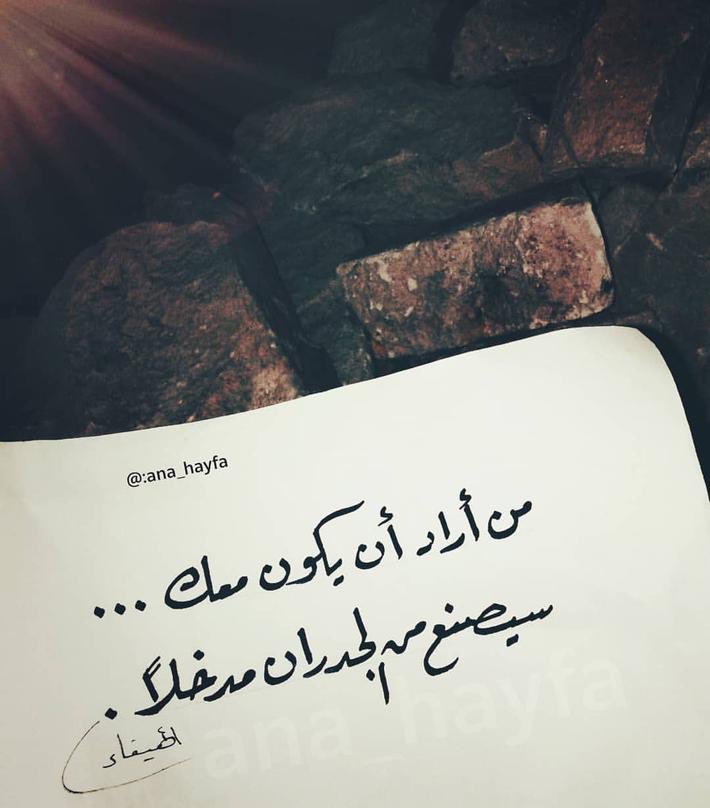 @:ana_hayfa
من أراد أن يكون معك ...
سيصنع من الجدران مدخلاً .
الهيفاء
ana_hayfa